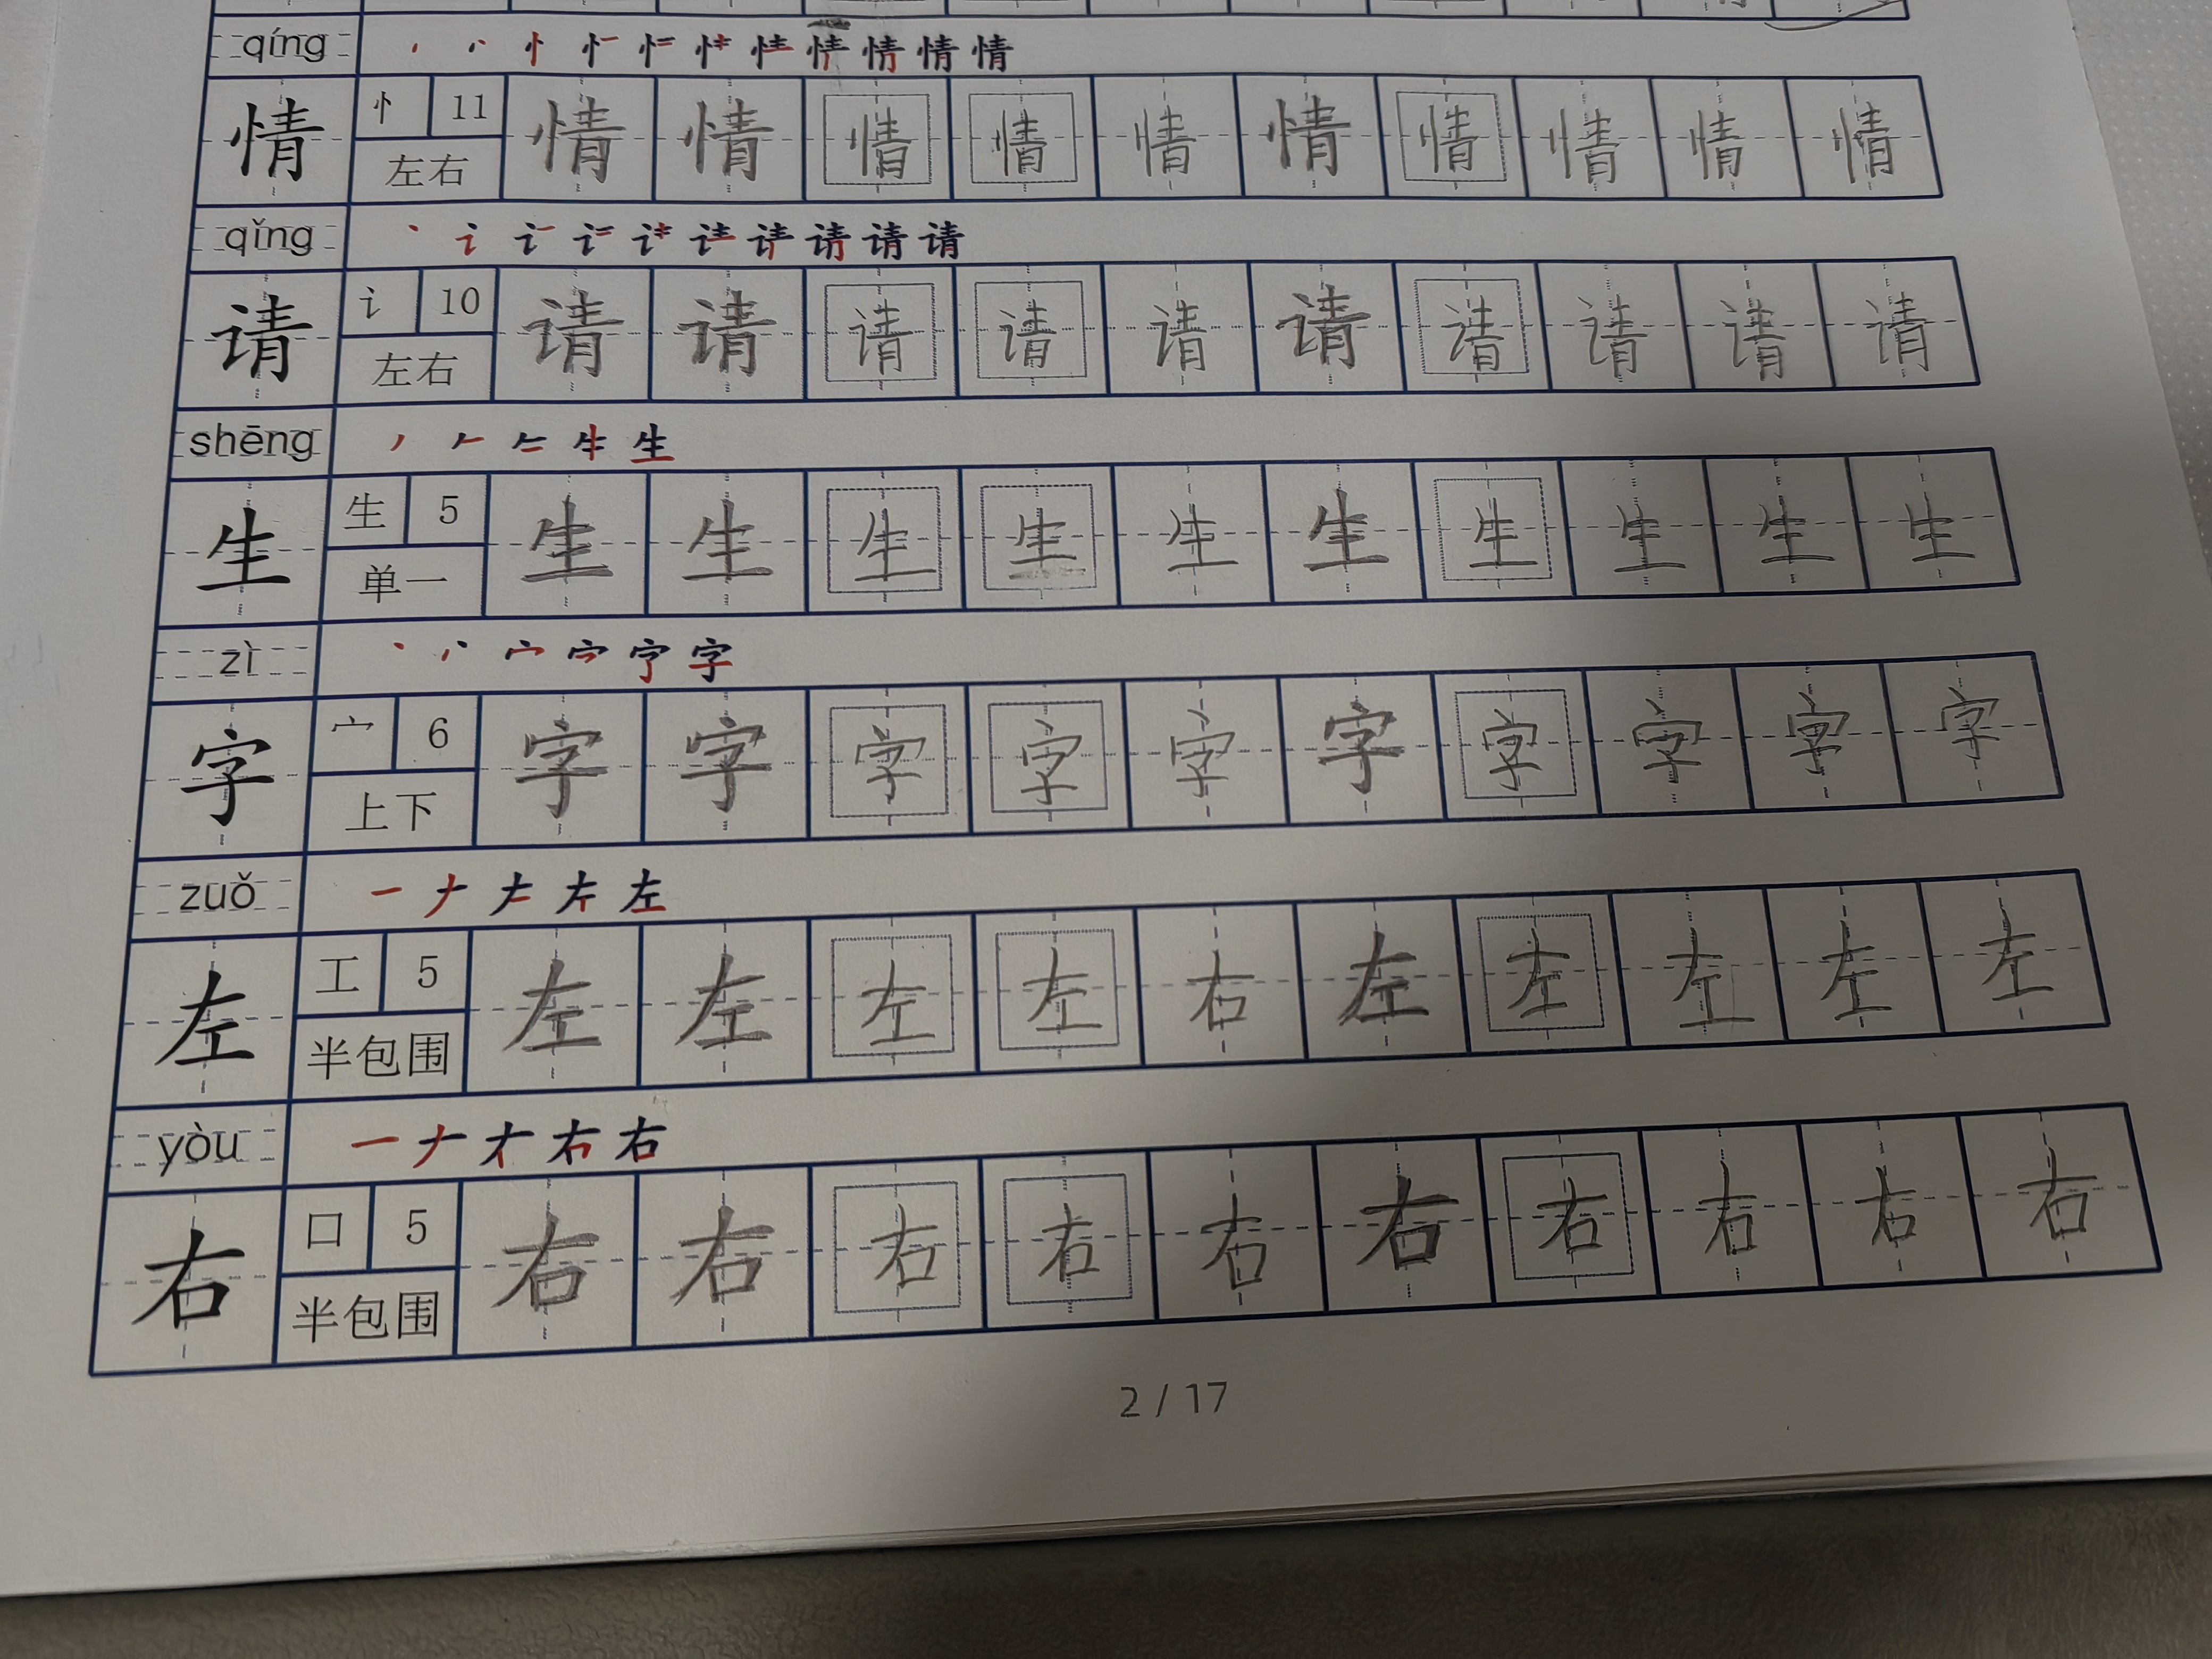 qíng
情 忄 11 情 情 情 情 情 情 情 情 情 情
左右
qǐng
请 讠 10 请 请 请 请 请 请 请 请 请 请
左右
shēng 生
生 生 5 生 生 生 生 生 生 生 生 生 生
单一
zì 字
字 宀 6 字 字 字 字 字 字 字 字 字 字
上下
zuǒ 一 左
左 工 5 左 左 左 左 右 左 左 左 左 左
半包围
yòu 一 右
右 口 5 右 右 右 右 右 右 右 右 右 右
半包围
2 / 17